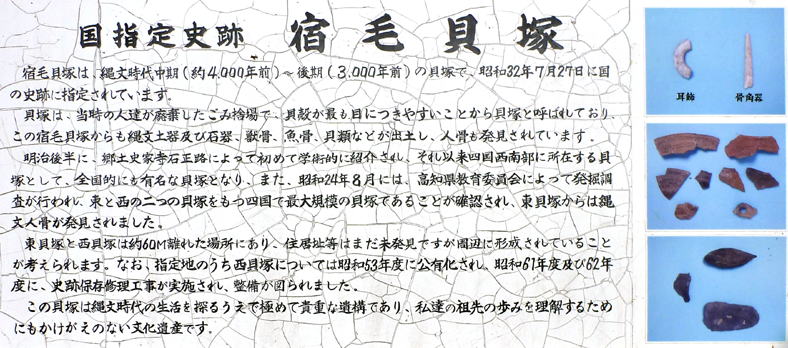 国指定史跡 宿毛貝塚
宿毛貝塚は、縄文時代中期(約4,000年前)~後期(3,000年前)の貝塚で、昭和32年7月27日に国
の史跡に指定されています。
貝塚は、当時の人達が廃棄したごみ捨場で、貝殻が最も目につきやすいことから貝塚と呼ばれており、
この宿毛貝塚からも縄文土器及び石器、獣骨、魚骨、貝類などが出土し、人骨も発見されています。
明治後半に、郷土史家寺石正路によって初めて学術的に紹介され、それ以来四国西南部に所在する貝
塚として、全国的にも有名な貝塚となり、また、昭和24年8月には、高知県教育委員会によって発掘調
査が行われ、東と西の二つの貝塚をもつ四国で最大規模の貝塚であることが確認され、東貝塚からは縄
文人骨が発見されました。
東貝塚と西貝塚は約60M離れた場所にあり、住居址等はまだ未発見ですが周辺に形成されていること
が考えられます。なお、指定地のうち西貝塚については昭和53年度に公有化され、昭和61年度及び62年
度に、史跡保存修理工事が実施され、整備が図られました。
この貝塚は縄文時代の生活を探るうえで極めて貴重な遺構であり、私達の祖先の歩みを理解するため
にもかけがえのない文化遺産です。
耳飾
骨角器